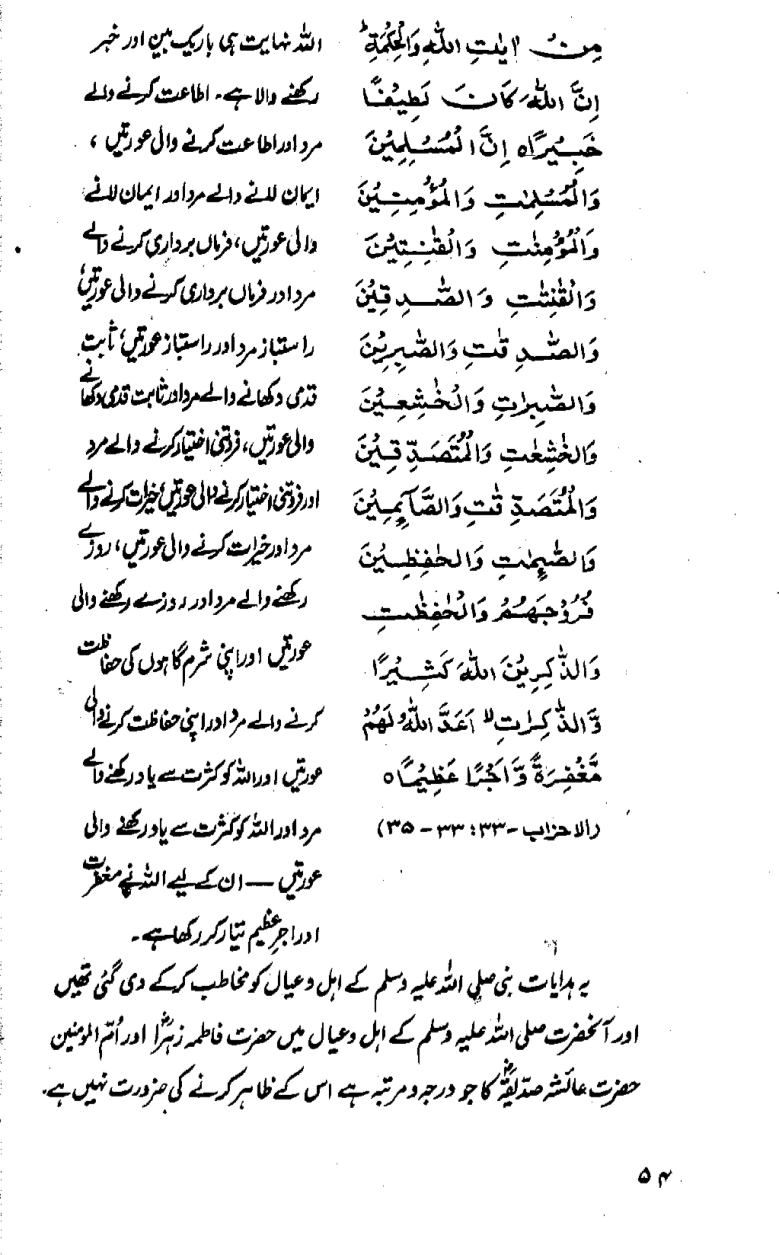 مِنْ اٰیٰتِ اللّٰهِ وَالْحِکْمَةِ ؕ
اِنَّ اللّٰهَ کَانَ لَطِیْفًا
خَبِیْرًا۵ اِنَّ الْمُسْلِمِیْنَ
وَالْمُسْلِمٰتِ وَالْمُؤْمِنِیْنَ
وَالْمُؤْمِنٰتِ وَالْقٰنِتِیْنَ
وَالْقٰنِتٰتِ وَالصّٰدِقِیْنَ
وَالصّٰدِقٰتِ وَالصّٰبِرِیْنَ
وَالصّٰبِرٰتِ وَالْخٰشِعِیْنَ
وَالْخٰشِعٰتِ وَالْمُتَصَدِّقِیْنَ
وَالْمُتَصَدِّقٰتِ وَالصَّآئِمِیْنَ
وَالصّٰئِمٰتِ وَالْحٰفِظِیْنَ
فُرُوْجَهُمْ وَالْحٰفِظٰتِ
وَالذّٰکِرِیْنَ اللّٰهَ کَثِیْرًا
وَّالذّٰکِرٰتِ ۙ اَعَدَّ اللّٰهُ لَهُمْ
مَّغْفِرَةً وَّاَجْرًا عَظِیْمًا۵
(الاحزاب -۳۳: ۳۳ - ۳۵)
اللہ نہایت ہی باریک بین اور خبر
رکھنے والا ہے۔ اطاعت کرنے والے
مرد اور اطاعت کرنے والی عورتیں،
ایمان لانے والے مرد اور ایمان لانے
والی عورتیں، فرماں برداری کرنے والے
مرد اور فرماں برداری کرنے والی عورتیں،
راستباز مرد اور راستباز عورتیں، ثابت
قدمی دکھانے والے مرد اور ثابت قدمی دکھانے
والی عورتیں، فروتنی اختیار کرنے والے مرد
اور فروتنی اختیار کرنے والی عورتیں، خیرات کرنے والے
مرد اور خیرات کرنے والی عورتیں، روزے
رکھنے والے مرد اور روزے رکھنے والی
عورتیں اور اپنی شرم گاہوں کی حفاظت
کرنے والے مرد اور اپنی حفاظت کرنے والی
عورتیں اور اللہ کو کثرت سے یاد رکھنے والے
مرد اور اللہ کو کثرت سے یاد رکھنے والی
عورتیں — ان کے لیے اللہ نے مغفرت
اور اجرِ عظیم تیار کر رکھا ہے۔
یہ ہدایات نبی صلی اللہ علیہ وسلم کے اہل و عیال کو مخاطب کر کے دی گئی تھیں
اور آنحضرت صلی اللہ علیہ وسلم کے اہل و عیال میں حضرت فاطمہ زہراؓ اور اُمّ المومنین
حضرت عائشہ صدیقہؓ کا جو درجہ و مرتبہ ہے اس کے ظاہر کرنے کی ضرورت نہیں ہے۔
۵۴